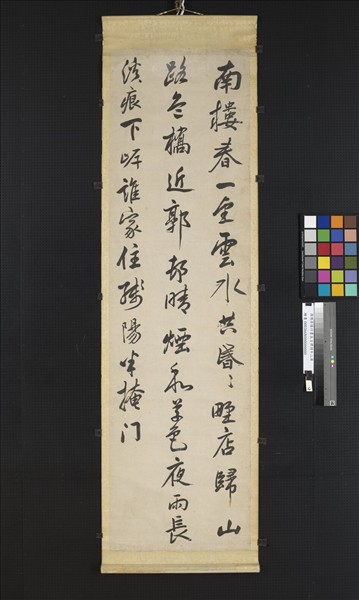 南樓春一望雲水共昏〻野店歸山
路危橋近郭邨晴煙和草色夜雨長
溪痕下岸誰家住殘陽半掩門